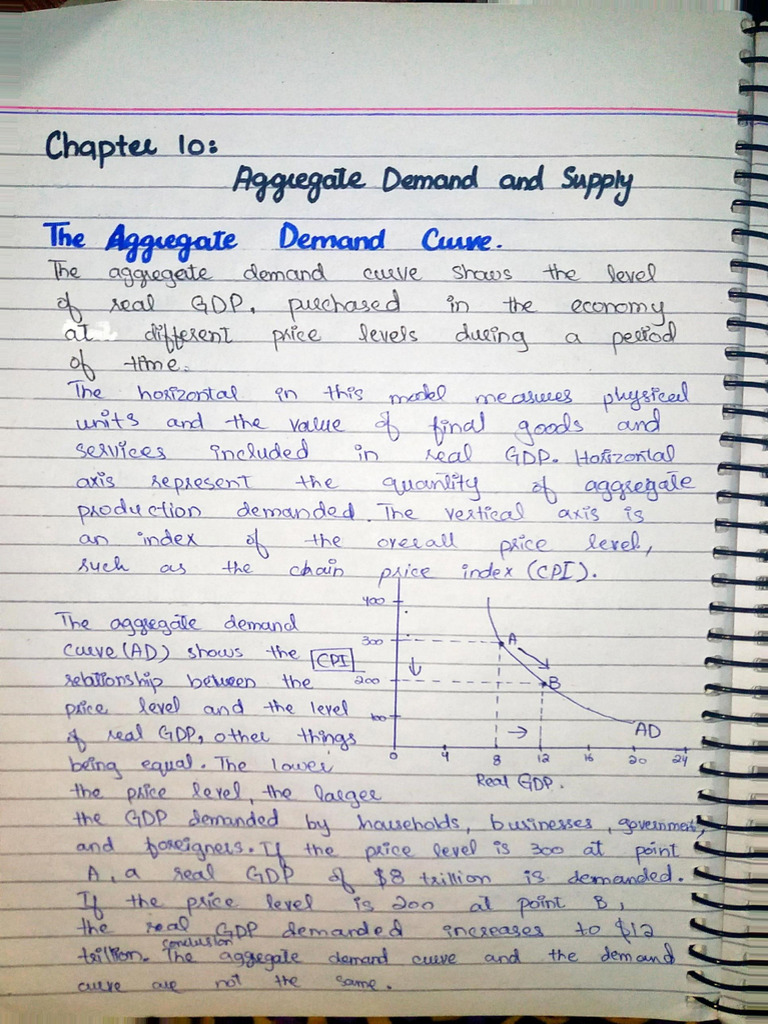 Chapter 10:
Aggregate Demand and Supply
The Aggregate Demand Curve.
The aggregate demand curve shows the level
of real GDP, purchased in the economy
at different price levels during a period
of time.
The horizontal in this model measures physical
units and the value of final goods and
services included in real GDP. Horizontal
axis represent the quantity of aggregate
production demanded. The vertical axis is
an index of the overall price level,
such as the chain price index (CPI).
The aggregate demand
curve (AD) shows the
relationship between the
price level and the level
of real GDP, other things
being equal. The lower
the price level, the larger
400
300
CPI
200
100
0 4 8 12 16 20 24
A
B
AD
Real GDP.
the GDP demanded by households, businesses, government,
and foreigners. If the price level is 300 at point
A, a real GDP of $8 trillion is demanded.
If the price level is 200 at point B,
the real GDP demanded increases to $12
trillion. conclusion The aggregate demand curve and the demand
curve are not the same.